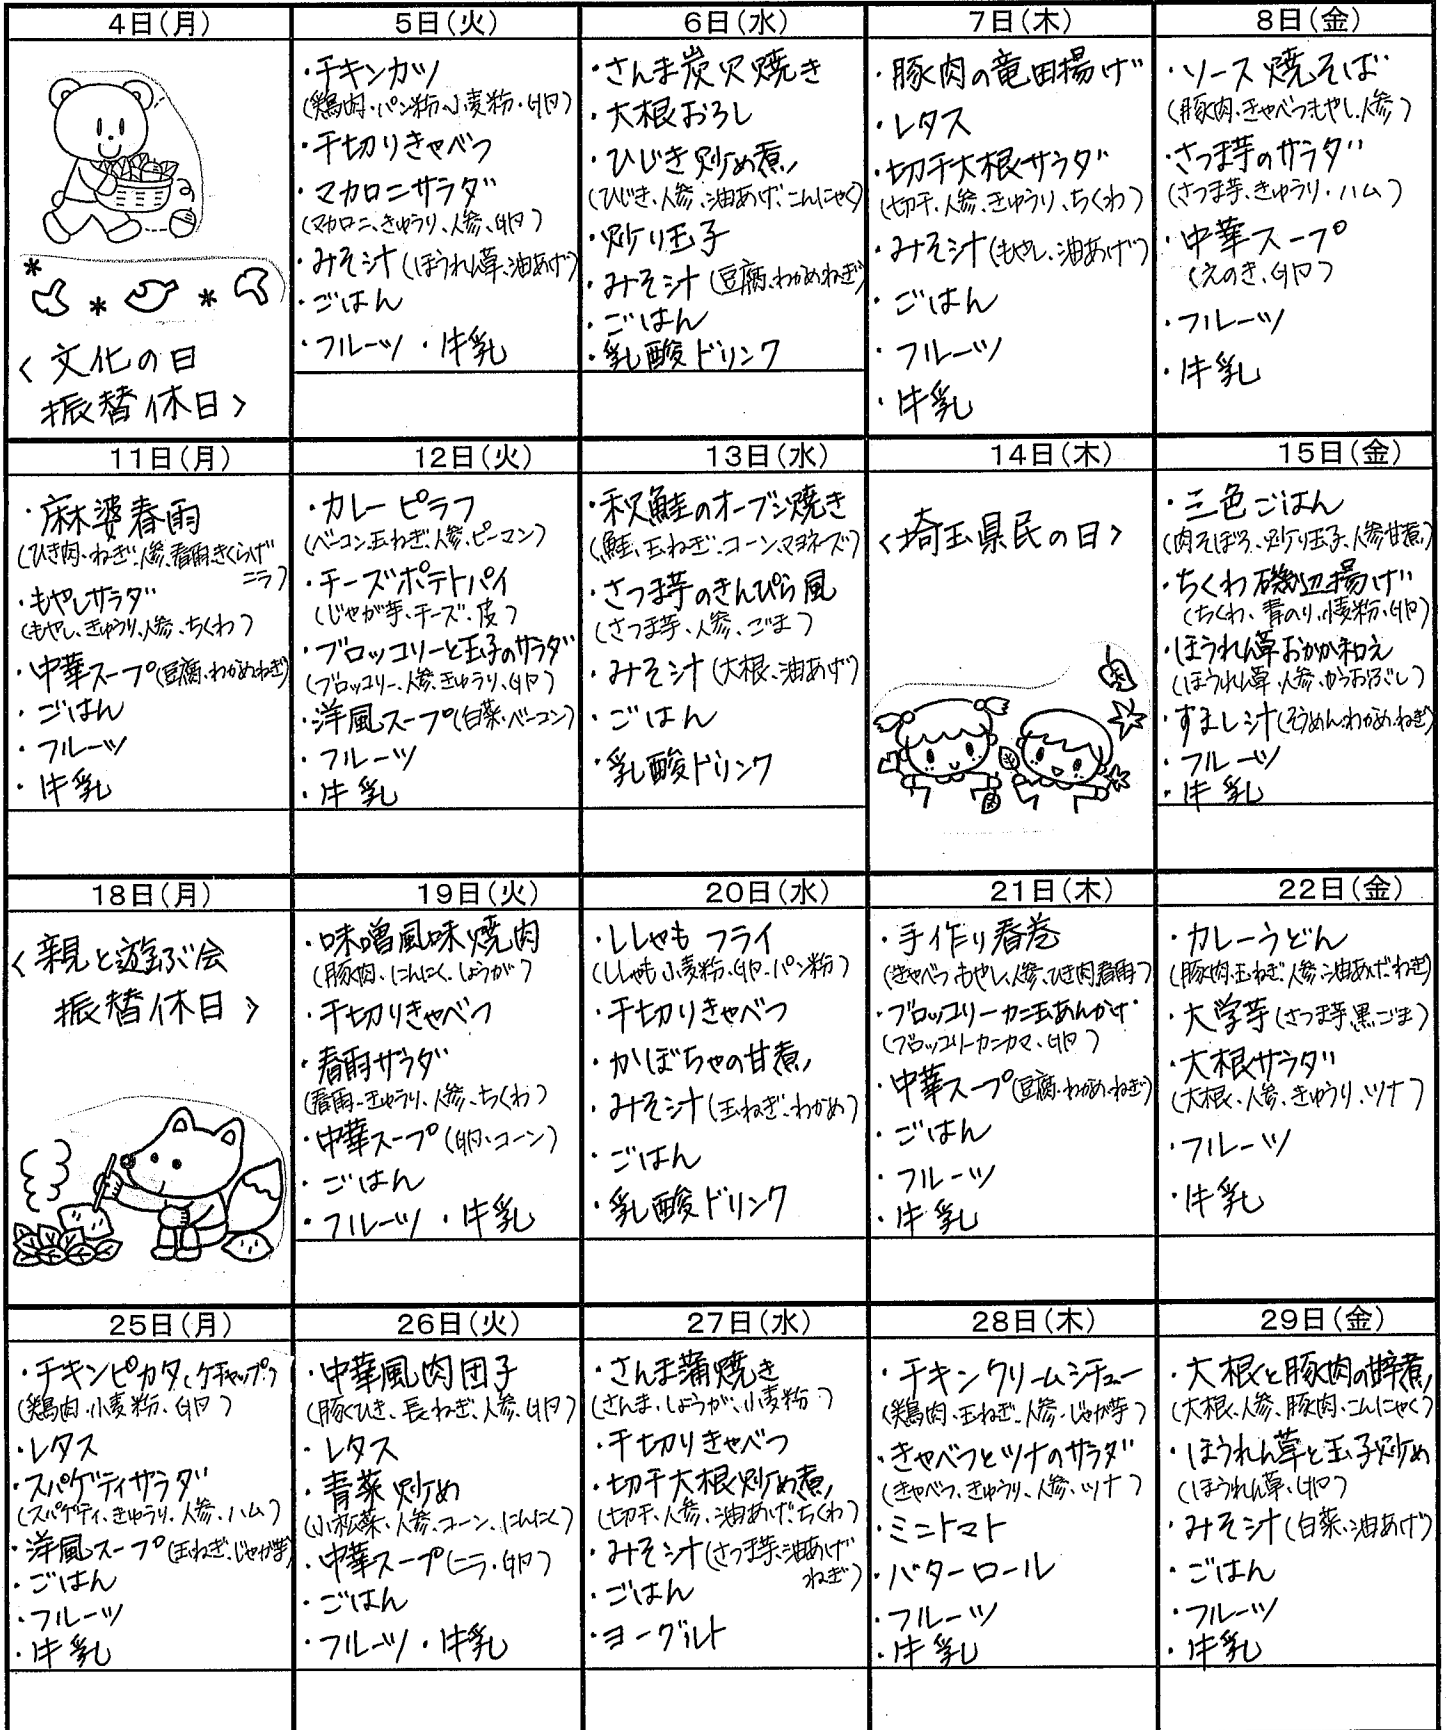 4日(月)
<文化の日
振替休日>
5日(火)
・チキンカツ
(鶏肉・パン粉・小麦粉・卵)
・千切りきゃべつ
・マカロニサラダ
(マカロニ、きゅうり、人参、卵)
・みそ汁(ほうれん草、油あげ)
・ごはん
・フルーツ ・牛乳
6日(水)
・さんま炭火焼き
・大根おろし
・ひじき炒め煮
(ひじき、人参、油あげ、こんにゃく)
・炒り玉子
・みそ汁(豆腐、わかめ、ねぎ)
・ごはん
・乳酸ドリンク
7日(木)
・豚肉の竜田揚げ
・レタス
・切干大根サラダ
(切干、人参、きゅうり、ちくわ)
・みそ汁(もやし、油あげ)
・ごはん
・フルーツ
・牛乳
8日(金)
・ソース焼そば
(豚肉・きゃべつ、もやし、人参)
・さつま芋のサラダ
(さつま芋、きゅうり・ハム)
・中華スープ
(えのき、卵)
・フルーツ
・牛乳
11日(月)
・麻婆春雨
(ひき肉・ねぎ、人参、春雨、きくらげ
ニラ)
・もやしサラダ
(もやし、きゅうり、人参、ちくわ)
・中華スープ(豆腐、わかめ、ねぎ)
・ごはん
・フルーツ
・牛乳
12日(火)
・カレーピラフ
(ベーコン、玉ねぎ、人参、ピーマン)
・チーズポテトパイ
(じゃが芋、チーズ、皮)
・ブロッコリーと玉子のサラダ
(ブロッコリー、人参、きゅうり、卵)
・洋風スープ(白菜・ベーコン)
・フルーツ
・牛乳
13日(水)
・秋鮭のオーブン焼き
(鮭、玉ねぎ、コーン、マヨネーズ)
・さつま芋のきんぴら風
(さつま芋、人参、ごま)
・みそ汁(大根、油あげ)
・ごはん
・乳酸ドリンク
14日(木)
<埼玉県民の日>
15日(金)
・三色ごはん
(肉そぼろ、炒り玉子、人参甘煮)
・ちくわ磯辺揚げ
(ちくわ、青のり、小麦粉、卵)
・ほうれん草おかか和え
(ほうれん草、人参、かつおぶし)
・すまし汁(そうめん、わかめ、ねぎ)
・フルーツ
・牛乳
18日(月)
<親と遊ぶ会
振替休日>
19日(火)
・味噌風味焼肉
(豚肉、にんにく、しょうが)
・千切りきゃべつ
・春雨サラダ
(春雨、きゅうり、人参、ちくわ)
・中華スープ(卵・コーン)
・ごはん
・フルーツ ・牛乳
20日(水)
・ししゃもフライ
(ししゃも、小麦粉、卵、パン粉)
・千切りきゃべつ
・かぼちゃの甘煮
・みそ汁(玉ねぎ、わかめ)
・ごはん
・乳酸ドリンク
21日(木)
・手作り春巻
(きゃべつ、もやし、人参、ひき肉、春雨)
・ブロッコリーカニ玉あんかけ
(ブロッコリー、カニカマ、卵)
・中華スープ(豆腐、わかめ、ねぎ)
・ごはん
・フルーツ
・牛乳
22日(金)
・カレーうどん
(豚肉、玉ねぎ、人参、油あげ、ねぎ)
・大学芋(さつま芋、黒ごま)
・大根サラダ
(大根、人参、きゅうり、ツナ)
・フルーツ
・牛乳
25日(月)
・チキンピカタ(ケチャップ)
(鶏肉・小麦粉、卵)
・レタス
・スパゲティサラダ
(スパゲティ、きゅうり、人参、ハム)
・洋風スープ(玉ねぎ、じゃが芋)
・ごはん
・フルーツ
・牛乳
26日(火)
・中華風肉団子
(豚ひき、長ねぎ、人参、卵)
・レタス
・青菜炒め
(小松菜、人参、コーン、にんにく)
・中華スープ(ニラ・卵)
・ごはん
・フルーツ・牛乳
27日(水)
・さんま蒲焼き
(さんま、しょうが、小麦粉)
・千切りきゃべつ
・切干大根炒め煮
(切干、人参、油あげ、ちくわ)
・みそ汁(さつま芋、油あげ
ねぎ)
・ごはん
・ヨーグルト
28日(木)
・チキンクリームシチュー
(鶏肉・玉ねぎ、人参、じゃが芋)
・きゃべつとツナのサラダ
(きゃべつ、きゅうり、人参、ツナ)
・ミニトマト
・バターロール
・フルーツ
・牛乳
29日(金)
・大根と豚肉の甘辛煮
(大根、人参、豚肉、こんにゃく)
・ほうれん草と玉子炒め
(ほうれん草、卵)
・みそ汁(白菜、油あげ)
・ごはん
・フルーツ
・牛乳